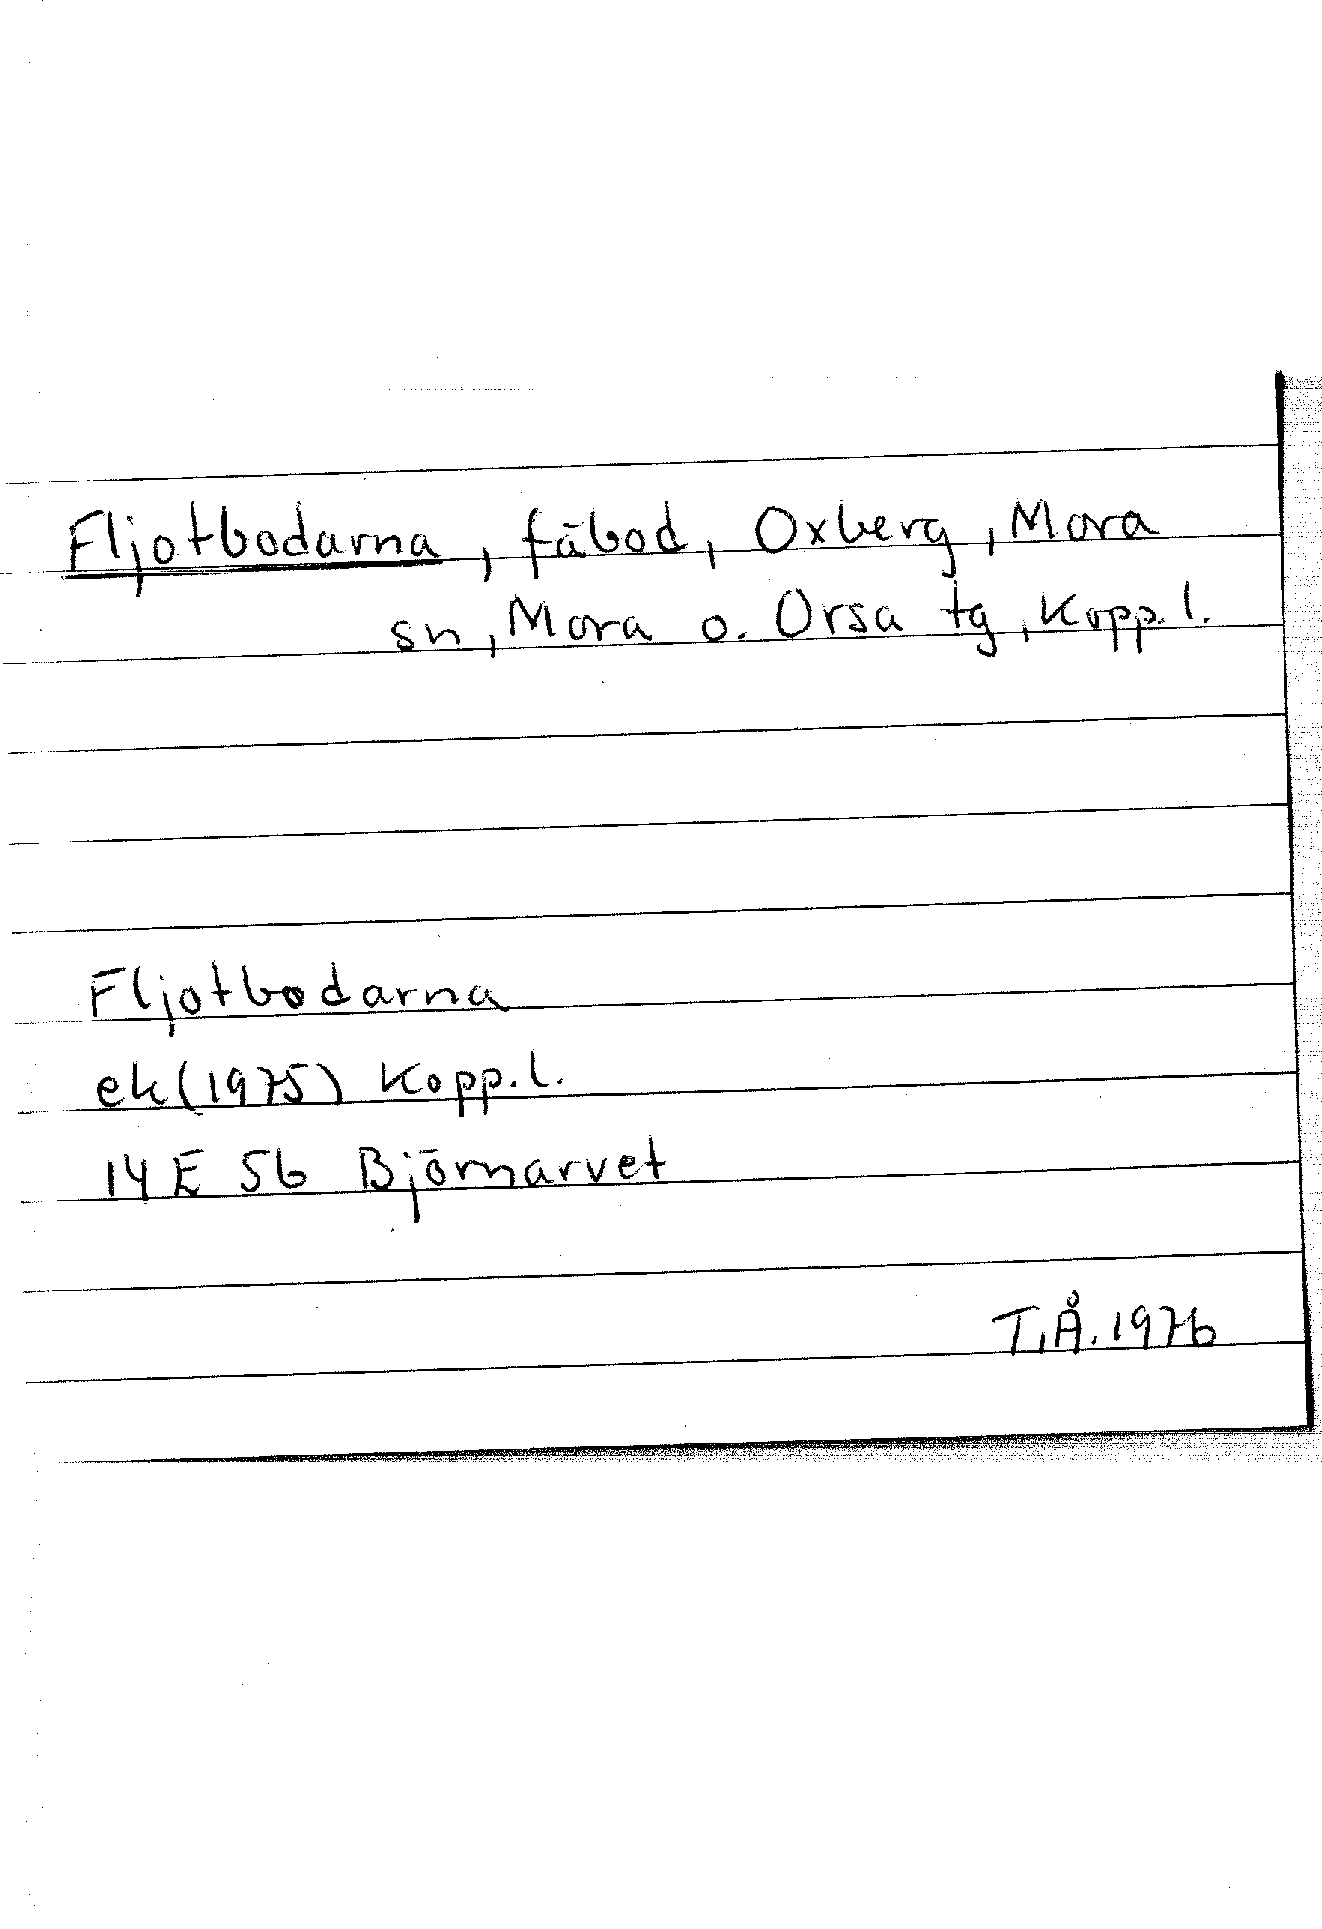 Fljotbodarna, fäbod, Oxberg, Mora
sn, Mora o. Orsa tg, Kopp.l.
Fljotbodarna
ek (1975) Kopp.l.
14 E 5b Björnarvet
T.Å. 1976